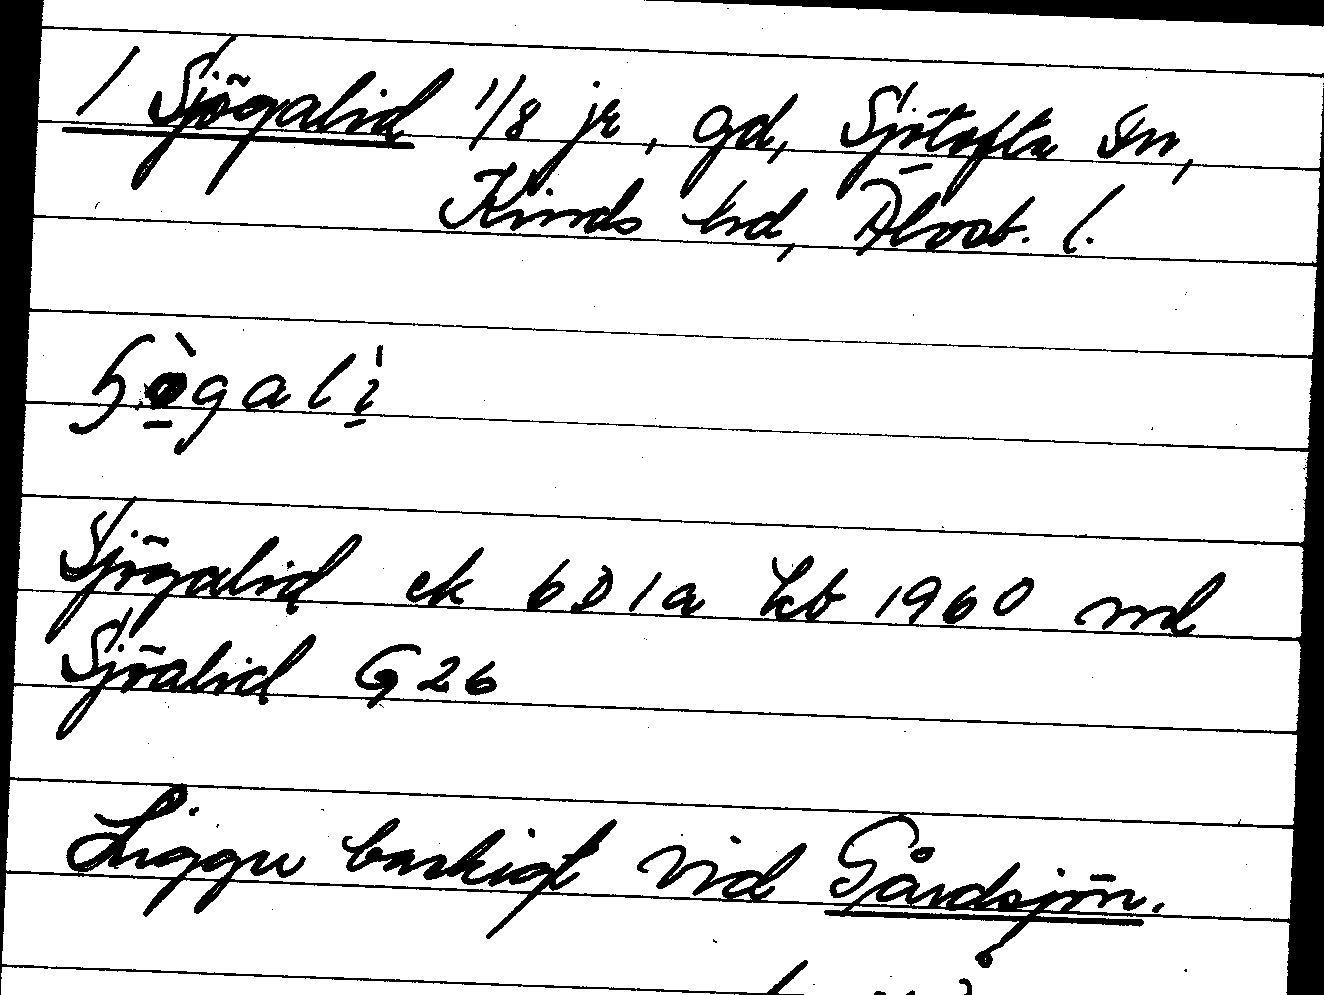 1 Sjögalid 1/8 jr, gd, Sjötofta sn,
Kinds hd, Älvsb. l.
Sjögalid ek 6D1a kb 1960 md
Sjöalid G26
Ligger backigt vid Gårdsjön.